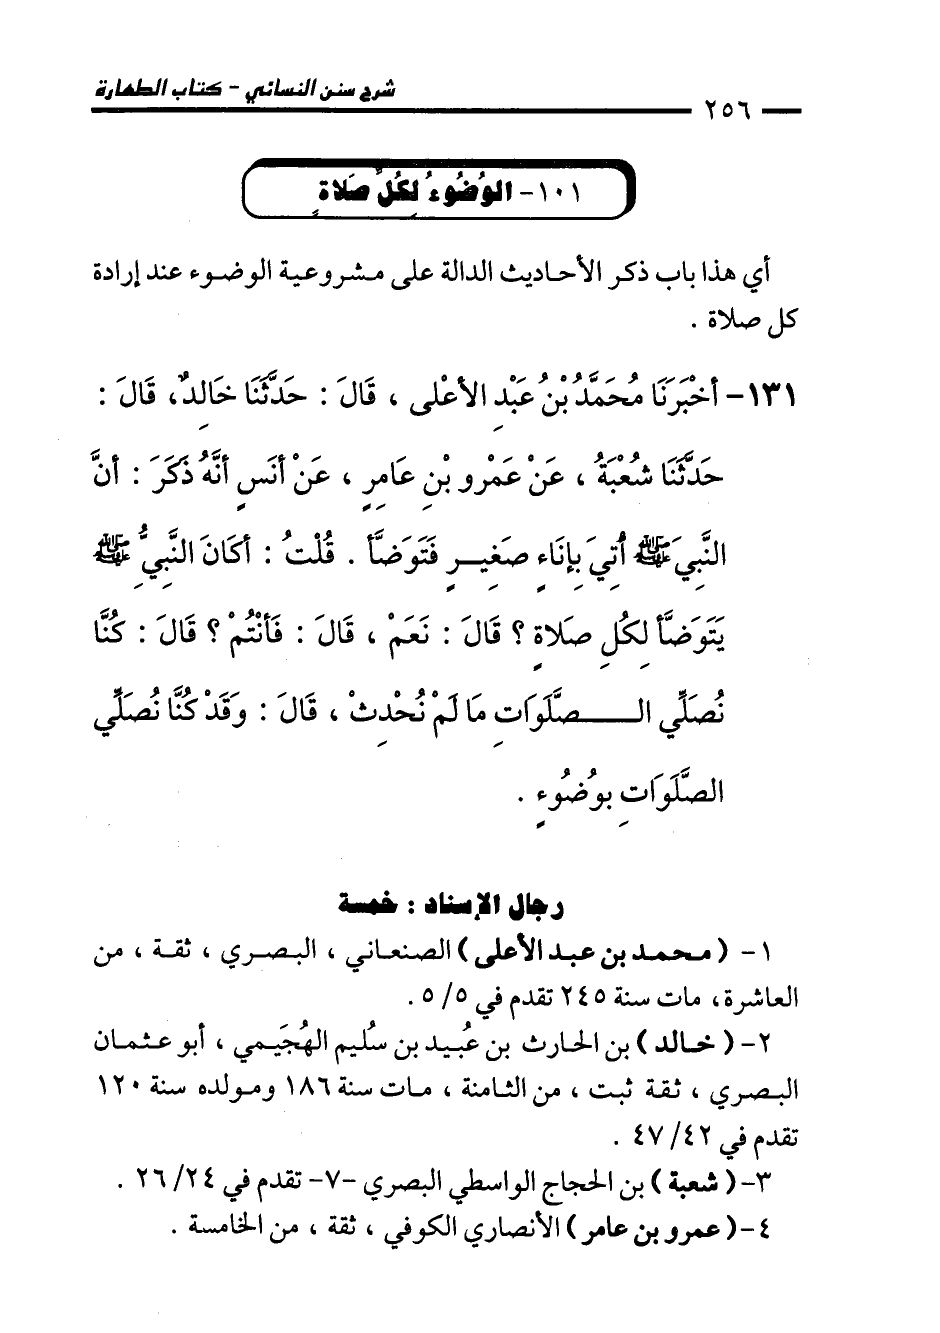 شرح سنن النسائي - كتاب الطهارة
٢٥٦
١٠١- الوُضُوءُ لِكُلِّ صَلاةٍ
أي هذا باب ذكر الأحاديث الدالة على مشروعية الوضوء عند إرادة
كل صلاة .
١٣١- أخْبَرَنَا مُحَمَّدُ بْنُ عَبْدِ الأعْلى ، قَالَ : حَدَّثَنَا خَالِدٌ، قَالَ :
حَدَّثَنَا شُعْبَةُ ، عَنْ عَمْرِو بْنِ عَامِرٍ ، عَنْ أنَسٍ أنَّهُ ذَكَرَ : أنَّ
النَّبِيَ ﷺ أُتِيَ بِإنَاءٍ صَغِيرٍ فَتَوَضَّأ . قُلْتُ : أكَانَ النَّبِيُّ ﷺ
يَتَوَضَّأ لِكُلِ صَلاةٍ ؟ قَالَ : نَعَمْ ، قَالَ : فَأنْتُمْ ؟ قَالَ : كُنَّا
نُصَلِّي الصَّلَوَاتِ مَا لَمْ نُحْدِثْ ، قَالَ : وَقَدْ كُنَّا نُصَلِّي
الصَّلَوَاتِ بِوُضُوءٍ .
رجال الإسناد : خمسة
١- (محمد بن عبد الأعلى) الصنعاني ، البصري ، ثقة ، من
العاشرة، مات سنة ٢٤٥ تقدم في ٥/ ٥ .
٢- (خالد) بن الحارث بن عُبيد بن سُليم الهُجَيمي ، أبو عثمان
البصري ، ثقة ثبت ، من الثامنة ، مات سنة ١٨٦ ومولده سنة ١٢٠
تقدم في ٤٢/ ٤٧ .
٣- (شعبة) بن الحجاج الواسطي البصري -٧- تقدم في ٢٤/ ٢٦ .
٤- (عمرو بن عامر) الأنصاري الكوفي ، ثقة ، من الخامسة .